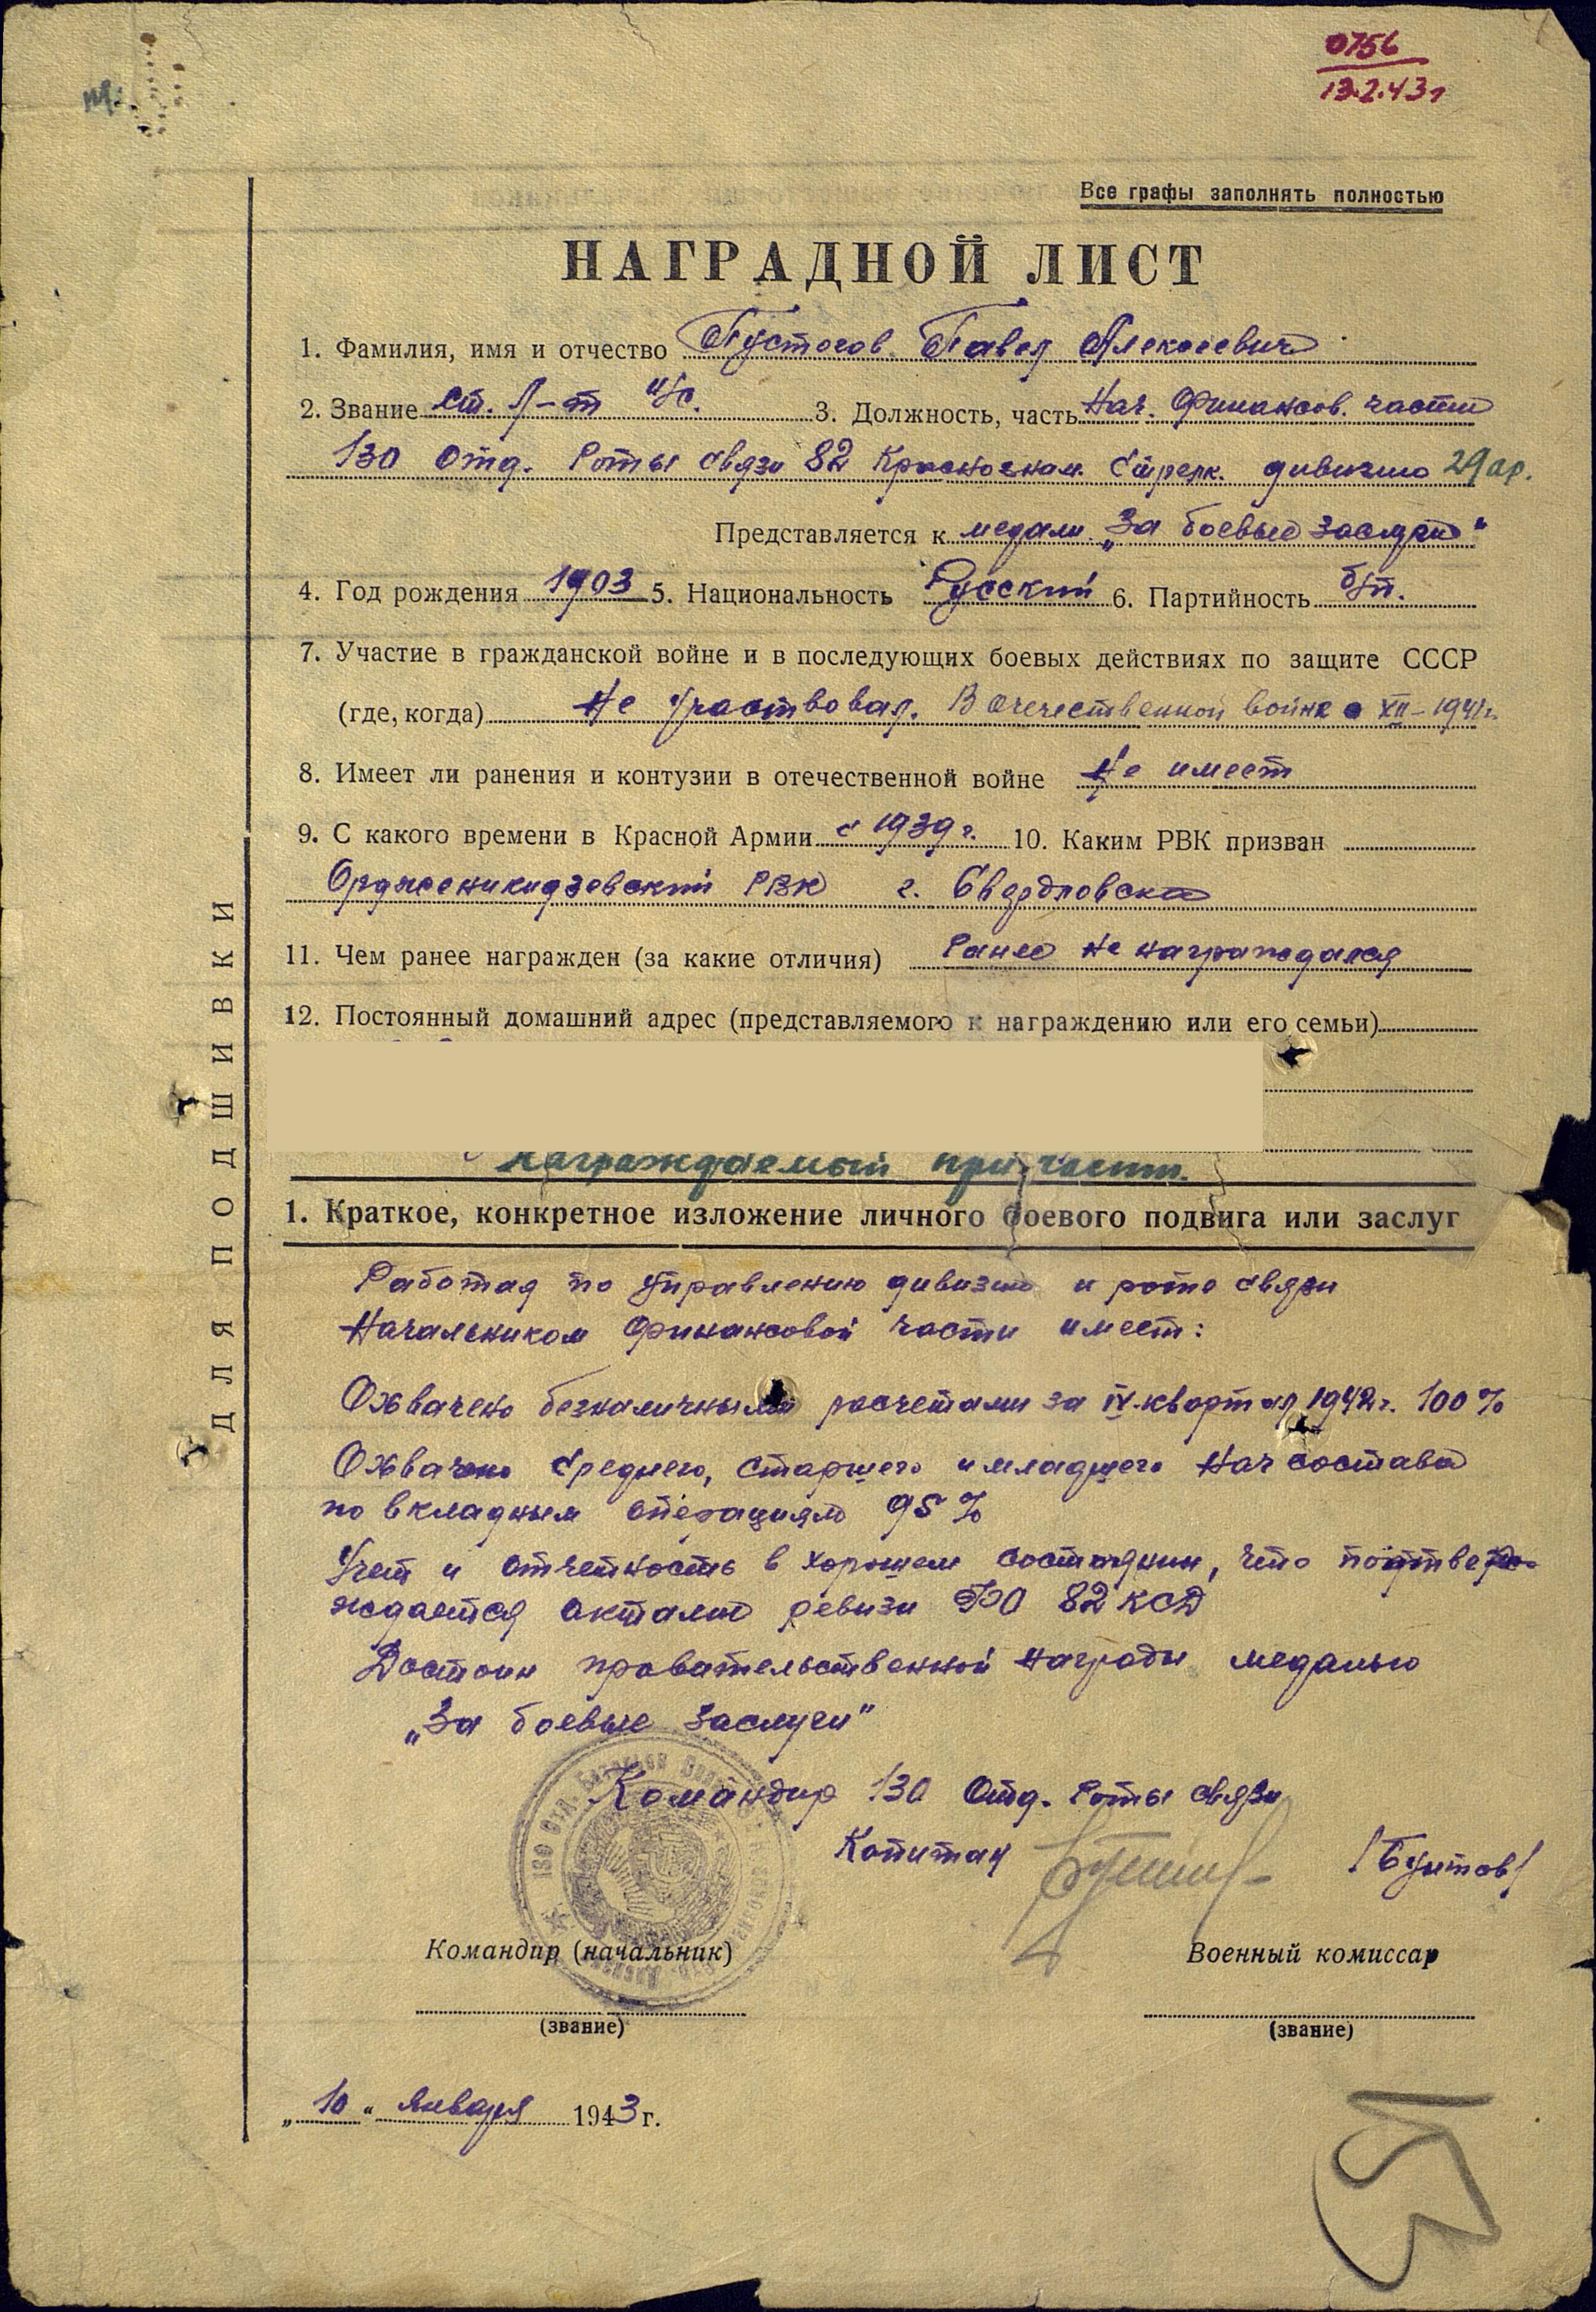 0756
13.2.43г
Все графы заполнять полностью
НАГРАДНОЙ ЛИСТ
1. Фамилия, имя и отчество Пустогов Павел Алексеевич
2. Звание ст. л-т и/с. 3. Должность, часть Нач. Финансов. части
130 Отд. Роты связи 82 Краснознам. Стрелк. дивизии 29 ар.
Представляется к медали „За боевые заслуги"
4. Год рождения 1903 5. Национальность Русский 6. Партийность б/п.
7. Участие в гражданской войне и в последующих боевых действиях по защите СССР
(где, когда) Не участвовал. В Отечественной войне с XII-1941г.
8. Имеет ли ранения и контузии в отечественной войне Не имеет
9. С какого времени в Красной Армии с 1939 г. 10. Каким РВК призван
Орджоникидзевский РВК г. Свердловска
11. Чем ранее награжден (за какие отличия) Ранее не награждался
12. Постоянный домашний адрес (представляемого к награждению или его семьи)
Награждаемый при части.
1. Краткое, конкретное изложение личного боевого подвига или заслуг
Работая по управлению дивизии и роте связи
Начальником Финансовой части имеет:
Охвачено безналичными расчетами за IV-квартал 1942г. 100%
Охвачено Среднего, Старшего и младшего Нач состава
по вкладным операциям 95%
Учет и отчетность в хорошем состоянии, что подтвер-
ждается актами ревизи ФО 82 КСД
Достоин правательственной награды медалью
„За боевые заслуги"
Командир 130 Отд. Роты связи
Капитан /Бунтов/
Командир (начальник) Военный комиссар
(звание) (звание)
„10" января 1943 г.
ДЛЯ ПОДШИВКИ